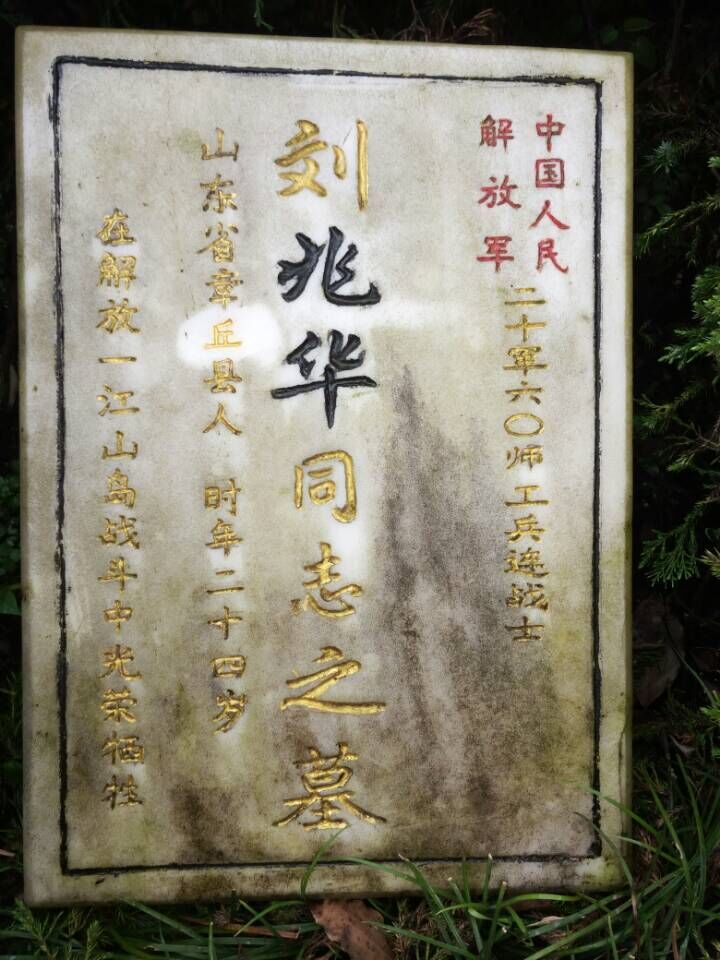 中国人民
解放军
二十军六〇师工兵连战士
刘兆华同志之墓
山东省章丘县人 时年二十四岁
在解放一江山岛战斗中光荣牺牲